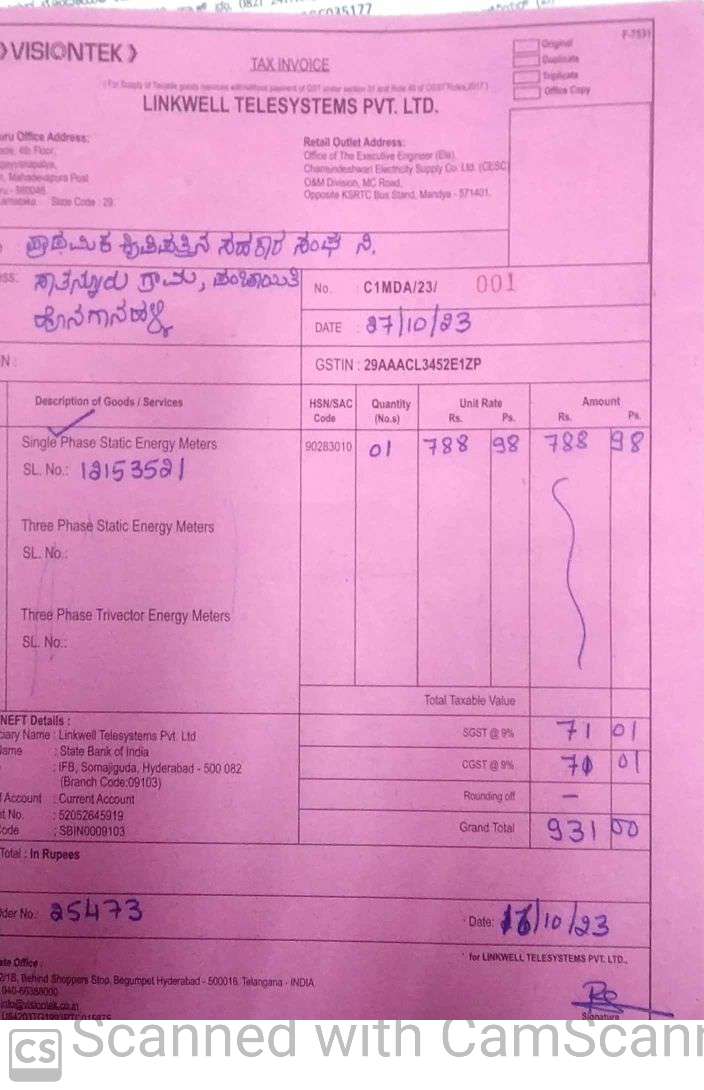 C035177
F-7531
VISIONTEK
Original
Duplicate
Triplicate
Office Copy
TAX INVOICE
LINKWELL TELESYSTEMS PVT. LTD.
uru Office Address:
4th Floor,
Mahadevapura Post
State Code : 29
Retail Outlet Address:
Office of The Executive Engineer (Ele),
Chamundeshwari Electricity Supply Co. Ltd. (CESC)
O&M Division, MC Road,
Opposite KSRTC Bus Stand, Mandya - 571401.
ಪ್ರಾಥಮಿಕ ಕೃಷಿಪತ್ತಿನ ಸಹಕಾರ ಸಂಘ ನಿ.
ess: ಸಾತನೂರು ಗ್ರಾಮ, ಪಂಚಾಯಿತಿ
ಹೊನಗಾನಹಳ್ಳಿ
No. : C1MDA/23/ 001
DATE : 27/10/23
N :
GSTIN : 29AAACL3452E1ZP
Description of Goods / Services
HSN/SAC Code
Quantity (No.s)
Unit Rate Rs. Ps.
Amount Rs. Ps.
Single Phase Static Energy Meters 90283010 01 788 98 788 98
SL. No.: 12153521
Three Phase Static Energy Meters
SL. No.:
Three Phase Trivector Energy Meters
SL. No.:
Total Taxable Value
NEFT Details :
iary Name : Linkwell Telesystems Pvt. Ltd
Name : State Bank of India
: IFB, Somajiguda, Hyderabad - 500 082
(Branch Code:09103)
f Account : Current Account
nt No. : 52052645919
Code : SBIN0009103
SGST @ 9% 71 01
CGST @ 9% 71 01
Rounding off —
Grand Total 931 00
Total : In Rupees
der No.: 25473
Date: 17/10/23
ate Office :
2/1B, Behind Shoppers Stop, Begumpet Hyderabad - 500016. Telangana - INDIA
040-66388000
info@visiontek.co.in
for LINKWELL TELESYSTEMS PVT. LTD.,
Signature
CS Scanned with CamScann